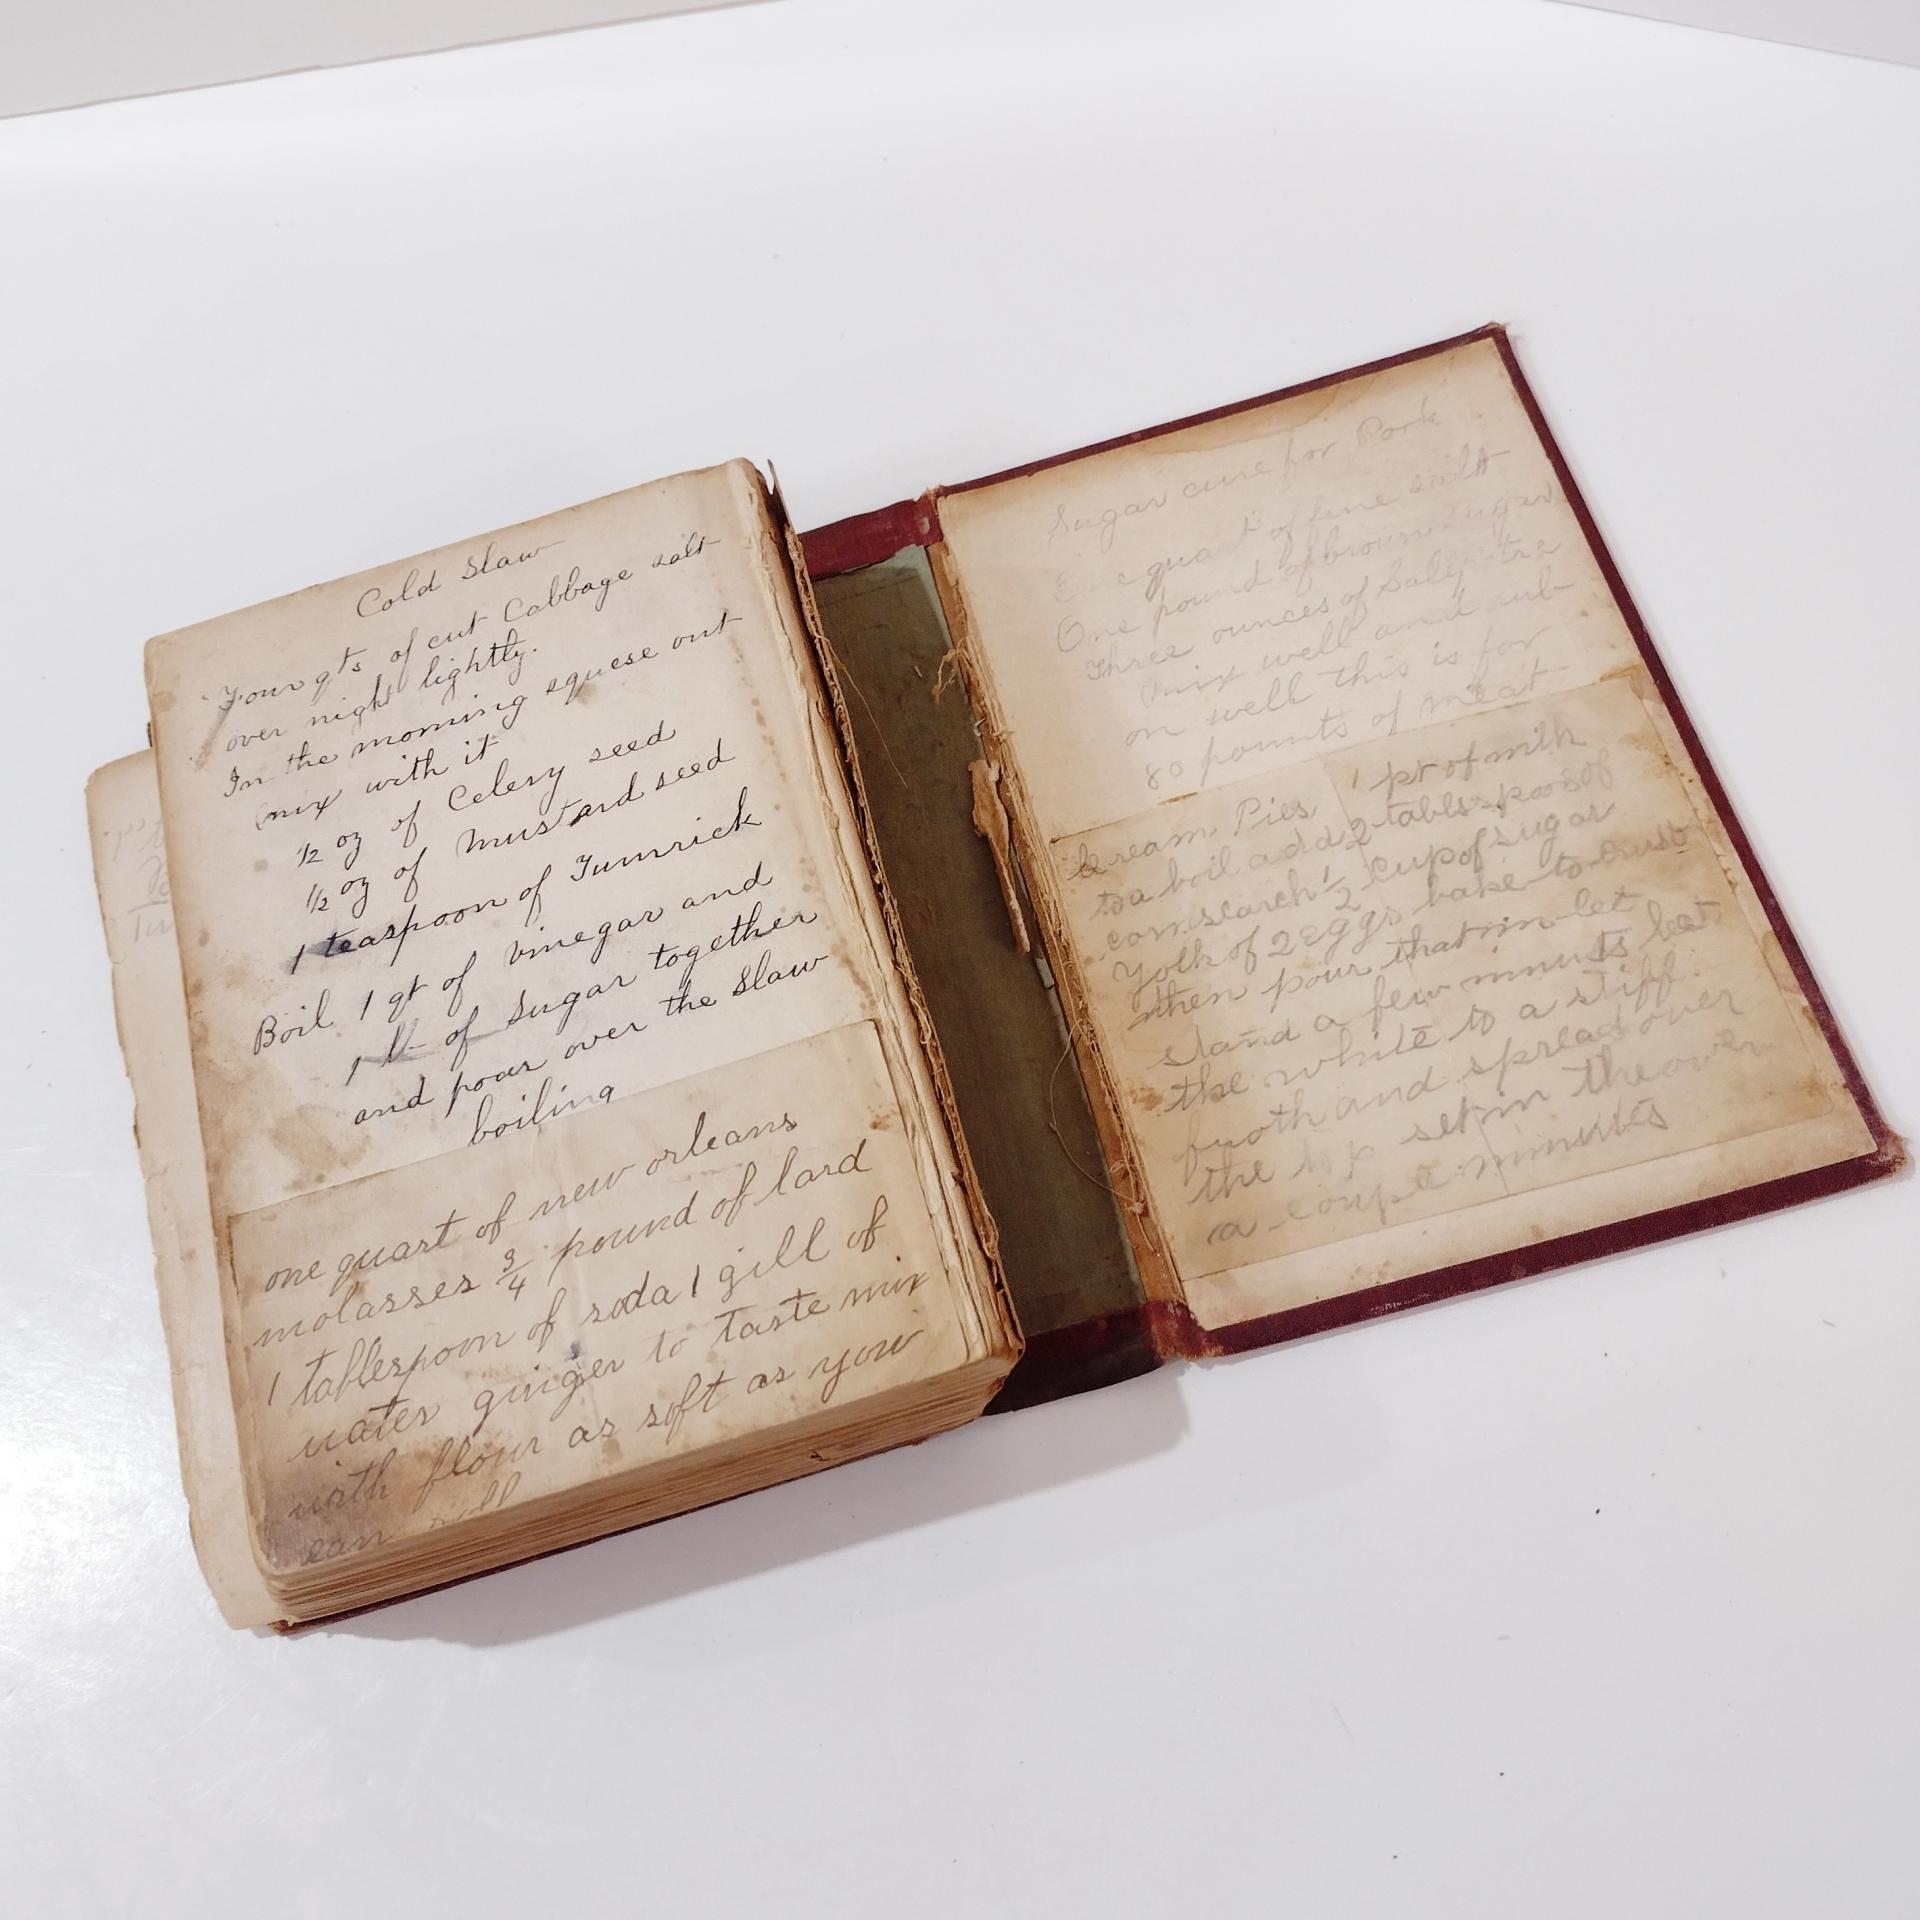 Cold Slaw
Four qts of cut Cabbage salt
over night lightly.
In the morning squese out
mix with it
1/2 oz of Celery seed
1/2 oz of Mustard seed
1 teaspoon of Tumrick
Boil 1 qt of vinegar and
1 lb of Sugar together
and pour over the Slaw
boiling
one quart of new orleans
molasses 3/4 pound of lard
1 tablespoon of soda 1 gill of
water ginger to taste mix
with flour as soft as you
can roll
Sugar cure for Pork
One quart of fine salt
One pound of brown sugar
Three ounces of Saltpetre
mix well and rub
on well this is for
80 pounts of meat
Cream Pies 1 pt of milk
to a boil add 2 tablespoos of
cornstarch 1/2 cup of sugar
Yolk of 2 eggs bake to crust
then pour that in let
stand a few minuts beat
the white to a stiff
froth and spread over
the top set in the oven
a coupe minutes